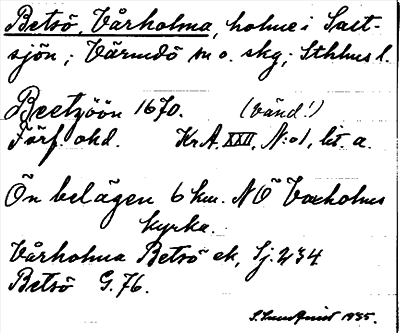 Betsö, Vårholma, holme i Salt-
sjön; Värmdö sn o. skg; Sthlms l.
Beetzöön 1670. (vänd!)
Förf. okd. Kr.A. XXII, N:o1, lit. a.
Ön belägen 6 km. NÖ Vaxholms
kyrka.
Vårholma Betsö ek, Sj. 234
Betsö G. 76.
1935.